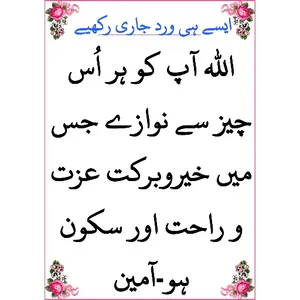 ایسے ہی ورد جاری رکھیے
اللہ آپ کو ہر اُس
چیز سے نوازے جس
میں خیروبرکت عزت
و راحت اور سکون
ہو-آمین